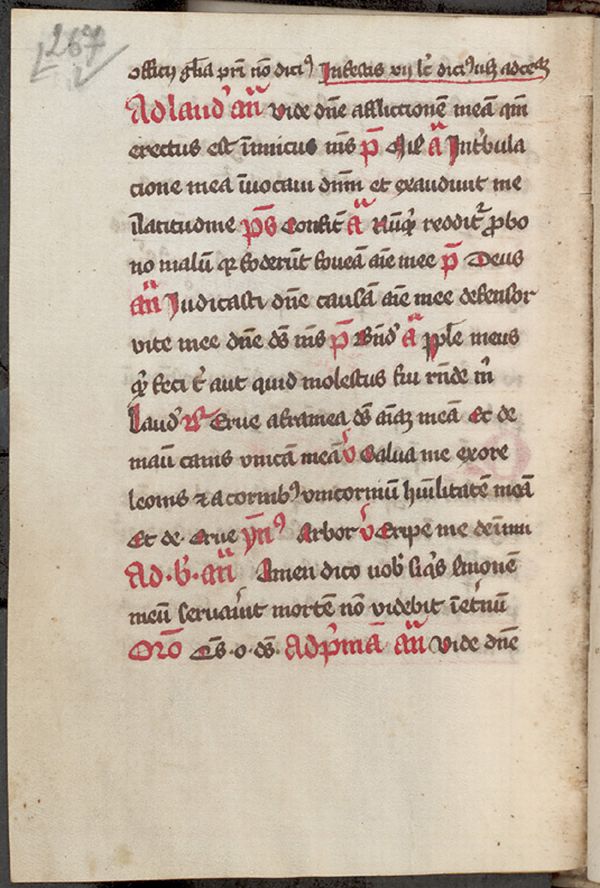 267
officij gl̄ia pr̄i nō dicit᷒ In festis vij lc̄ dicit᷒ usq̄ ad ce
Ad laud᷒ an̄ Vide dn̄e affliccionē meā qm̄
erectus est īnimicus m̄s p̄ Mis̄ a̅ In t᷒bula
cione mea īuocaui dn̄m et exaudiuit me
ī latitudine ps̄ Confit̄ a̅ Nūq᷒ reddit᷒ ꝓ bo
no malū qr foderūt foueā aīe mee p̄ Deus
an̄ Iudicasti dn̄e causā aīe mee defensor
vite mee dn̄e ds̄ m̄s p̄ Bn̄d᷒ a̅ Pople meus
q᷒ feci t᷒ aut quid molestus fui rn̄de m̄
Laud᷒ R᷒ Erue a framea ds̄ aīaʒ meā Et de
manū canis vnicā meā v᷒ Salua me ex ore
leonis ⁊ a cornib᷒ vnicorniū hūilitatē meā
Et de · Erue ymn᷒ Arbor v᷒ Eripe me de inimi
Ad · b᷒ · an̄ Amen dico vob᷒ si q᷒s s᷒monē
meū seruau᷒it mortē nō videbit ī et᷒nū
Orō Qs̄ · o · ds̄ · Ad p᷒mā an̄ Vide dn̄e